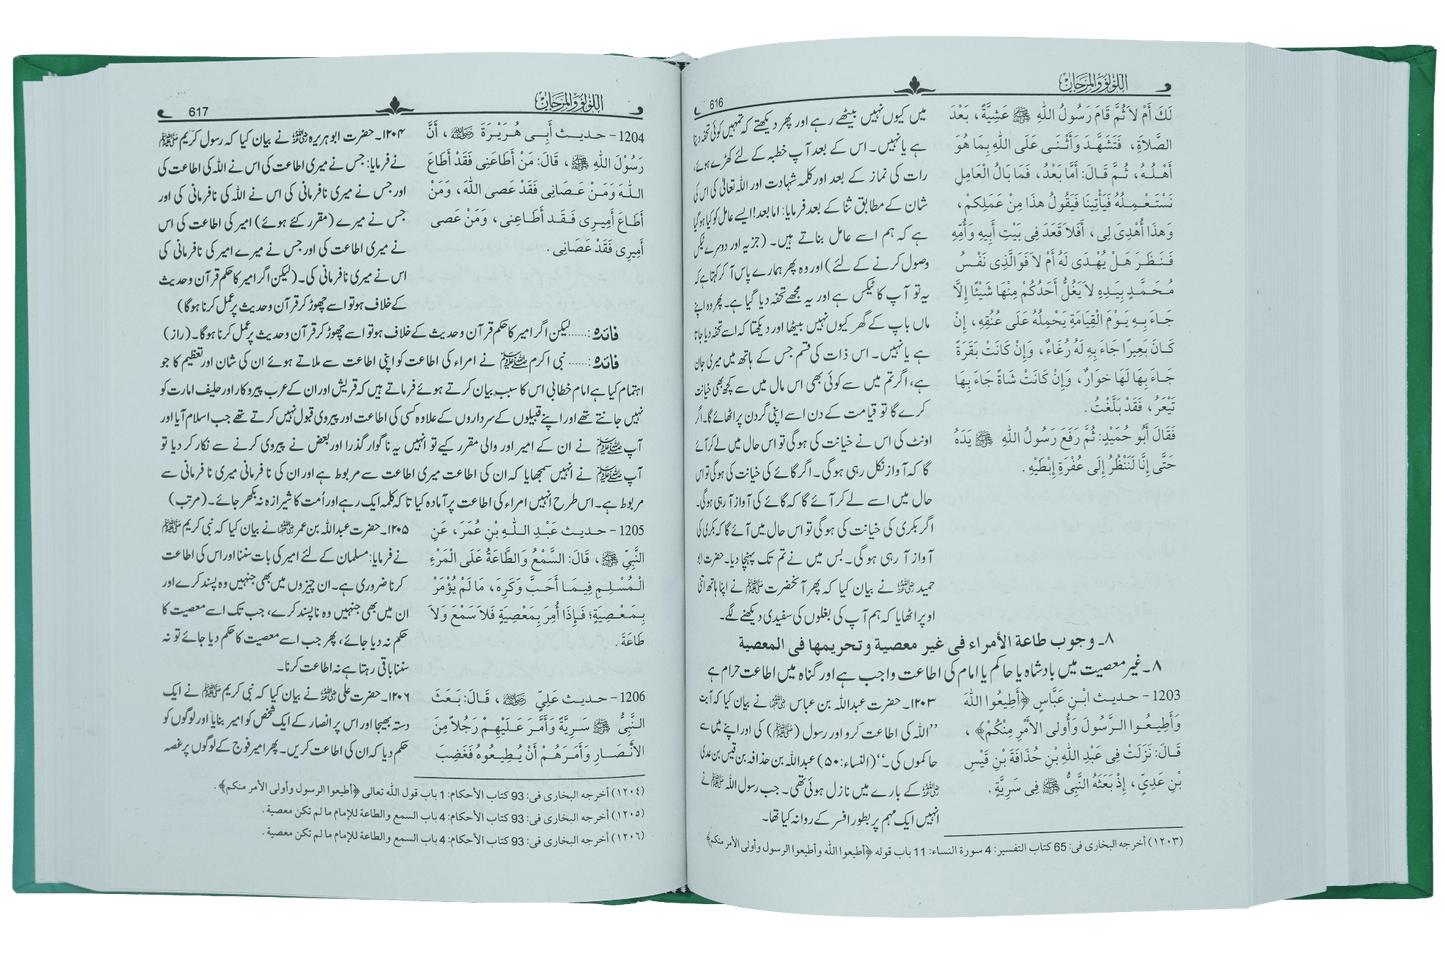 616 اللؤلؤ والمرجان
لَكَ أَمْ لاَ ثُمَّ قَامَ رَسُولُ اللهِ ﷺ عَشِيَّةً، بَعْدَ
الصَّلاَةِ، فَتَشَهَّدَ وَأَثْنَى عَلَى اللهِ بِمَا هُوَ
أَهْلُهُ، ثُمَّ قَالَ: أَمَّا بَعْدُ، فَمَا بَالُ الْعَامِلِ
نَسْتَعْمِلُهُ فَيَأْتِينَا فَيَقُولُ هذَا مِنْ عَمَلِكُمْ،
وَهذَا أُهْدِيَ لِي، أَفَلاَ قَعَدَ فِي بَيْتِ أَبِيهِ وَأُمِّهِ
فَنَظَرَ هَلْ يُهْدَى لَهُ أَمْ لاَ فَوَالَّذِى نَفْسُ
مُحَمَّدٍ بِيَدِهِ لاَ يَغُلُّ أَحَدُكُمْ مِنْهَا شَيْئًا إِلاَّ
جَاءَ بِهِ يَوْمَ الْقِيَامَةِ يَحْمِلُهُ عَلَى عُنُقِهِ، إِنْ
كَانَ بَعِيرًا جَاءَ بِهِ لَهُ رُغَاءٌ، وَإِنْ كَانَتْ بَقَرَةً
جَاءَ بِهَا لَهَا خُوَارٌ، وَإِنْ كَانَتْ شَاةً جَاءَ بِهَا
تَيْعَرُ، فَقَدْ بَلَّغْتُ.
فَقَالَ أَبُو حُمَيْدٍ: ثُمَّ رَفَعَ رَسُولُ اللهِ ﷺ يَدَهُ
حَتَّى إِنَّا لَنَنْظُرُ إِلَى عُفْرَةِ إِبْطَيْهِ.
میں کیوں نہیں بیٹھے رہے اور پھر دیکھتے کہ تمہیں کوئی تحفہ دیتا
ہے یا نہیں۔ اس کے بعد آپ خطبہ کے لئے کھڑے ہوئے،
رات کی نماز کے بعد اور کلمہ شہادت اور اللہ تعالیٰ کی اس کی
شان کے مطابق ثنا کے بعد فرمایا: اما بعد! ایسے عامل کو کیا ہو گیا
ہے کہ ہم اسے عامل بناتے ہیں۔ (جزیہ اور دوسرے ٹیکس
وصول کرنے کے لئے) اور وہ پھر ہمارے پاس آ کر کہتا ہے کہ
یہ تو آپ کا ٹیکس ہے اور یہ مجھے تحفہ دیا گیا ہے۔ پھر وہ اپنے
ماں باپ کے گھر کیوں نہیں بیٹھا اور دیکھتا کہ اسے تحفہ دیا جاتا
ہے یا نہیں۔ اس ذات کی قسم جس کے ہاتھ میں میری جان
ہے، اگر تم میں سے کوئی بھی اس مال میں سے کچھ بھی خیانت
کرے گا تو قیامت کے دن اسے اپنی گردن پر اٹھائے گا۔ اگر
اونٹ کی اس نے خیانت کی ہوگی تو اس حال میں لے کر آئے
گا کہ آواز نکل رہی ہوگی۔ اگر گائے کی خیانت کی ہوگی تو اس
حال میں اسے لے کر آئے گا کہ گائے کی آواز آ رہی ہوگی۔
اگر بکری کی خیانت کی ہوگی تو اس حال میں آئے گا کہ بکری کی
آواز آ رہی ہوگی۔ بس میں نے تم تک پہنچا دیا۔ حضرت ابو
حمید ؓ نے بیان کیا کہ پھر آنحضرت ﷺ نے اپنا ہاتھ اتنی
اوپر اٹھایا کہ ہم آپ کی بغلوں کی سفیدی دیکھنے لگے۔
۸۔ وجوب طاعة الأمراء فى غير معصية وتحريمها فى المعصية
۸۔ غیر معصیت میں بادشاہ یا حاکم یا امام کی اطاعت واجب ہے اور گناہ میں اطاعت حرام ہے
1203 – حديث ابْنِ عَبَّاسٍ ﴿أَطِيعُوا اللهَ
وَأَطِيعُوا الرَّسُولَ وَأُولِى الأَمْرِ مِنْكُمْ﴾،
قَالَ: نَزَلَتْ فِى عَبْدِ اللهِ بْنِ حُذَافَةَ بْنِ قَيْسِ
بْنِ عَدِيٍّ، إِذْ بَعَثَهُ النَّبِيُّ ﷺ فِى سَرِيَّةٍ.
۱۲۰۳۔ حضرت عبداللہ بن عباس ؓ نے بیان کیا کہ آیت
’’اللہ کی اطاعت کرو اور رسول (ﷺ) کی اور اپنے میں سے
حاکموں کی۔‘‘ (النساء: ۵۰) عبداللہ بن حذافہ بن قیس بن عدی
ؓ کے بارے میں نازل ہوئی تھی۔ جب رسول اللہ ﷺ نے
انہیں ایک مہم پر بطور افسر کے روانہ کیا تھا۔
(١٢٠٣) أخرجه البخارى فى: 65 كتاب التفسير: 4 سورة النساء: 11 باب قوله ﴿أطيعوا الله وأطيعوا الرسول وأولى الأمر منكم﴾
617 اللؤلؤ والمرجان
1204 – حديث أَبِى هُرَيْرَةَ ؓ، أَنَّ
رَسُوْلَ اللهِ ﷺ، قَالَ: مَنْ أَطَاعَنِى فَقَدْ أَطَاعَ
اللهَ وَمَنْ عَصَانِى فَقَدْ عَصى اللهَ، وَمَنْ
أَطَاعَ أَمِيرِى فَقَد أَطَاعَنِى، وَمَنْ عَصى
أَمِيرِى فَقَدْ عَصَانِى.
۱۲۰۴۔ حضرت ابو ہریرہ ؓ نے بیان کیا کہ رسول کریم ﷺ
نے فرمایا: جس نے میری اطاعت کی اس نے اللہ کی اطاعت کی
اور جس نے میری نافرمانی کی اس نے اللہ کی نافرمانی کی اور
جس نے میرے (مقرر کئے ہوئے) امیر کی اطاعت کی اس
نے میری اطاعت کی اور جس نے میرے امیر کی نافرمانی کی
اس نے میری نافرمانی کی۔ (لیکن اگر امیر کا حکم قرآن و حدیث
کے خلاف ہو تو اسے چھوڑ کر قرآن و حدیث پر عمل کرنا ہوگا)
فائدہ:......لیکن اگر امیر کا حکم قرآن و حدیث کے خلاف ہو تو اسے چھوڑ کر قرآن و حدیث پر عمل کرنا ہوگا۔ (راز)
فائدہ:...... نبی اکرم ﷺ نے امراء کی اطاعت کو اپنی اطاعت سے ملاتے ہوئے ان کی شان اور تعظیم کا جو
اہتمام کیا ہے امام خطابی اس کا سبب بیان کرتے ہوئے فرماتے ہیں کہ قریش اور ان کے عرب پیروکار اور حلیف امارت کو
نہیں جانتے تھے اور اپنے قبیلوں کے سرداروں کے علاوہ کسی کی اطاعت اور پیروی قبول نہیں کرتے تھے جب اسلام آیا اور
آپ ﷺ نے ان کے امیر اور والی مقرر کیے تو انہیں یہ ناگوار گذرا اور بعض نے پیروی کرنے سے انکار کر دیا تو
آپ ﷺ نے انہیں سمجھایا کہ ان کی اطاعت میری اطاعت سے مربوط ہے اور ان کی نافرمانی میری نافرمانی سے
مربوط ہے۔ اس طرح انہیں امراء کی اطاعت پر آمادہ کیا تا کہ کلمہ ایک رہے اور اُمت کا شیرازہ نہ بکھر جائے۔ (مرتب)
1205 – حديث عَبْدِ اللهِ بْنِ عُمَرَ، عَنِ
النَّبِيِّ ﷺ، قَالَ: السَّمْعُ وَالطَّاعَةُ عَلَى الْمَرْءِ
الْمُسْلِمِ فِيمَا أَحَبَّ وَكَرِهَ، مَا لَمْ يُؤْمَرْ
بِمَعْصِيَةٍ؛ فَإِذَا أُمِرَ بِمَعْصِيَةٍ فَلاَ سَمْعَ وَلاَ
طَاعَةَ.
۱۲۰۵۔ حضرت عبداللہ بن عمر ؓ نے بیان کیا کہ نبی کریم ﷺ
نے فرمایا: مسلمان کے لئے امیر کی بات سننا اور اس کی اطاعت
کرنا ضروری ہے۔ ان چیزوں میں بھی جنہیں وہ پسند کرے اور
ان میں بھی جنہیں وہ ناپسند کرے، جب تک اسے معصیت کا
حکم نہ دیا جائے، پھر جب اسے معصیت کا حکم دیا جائے تو نہ
سننا باقی رہتا ہے نہ اطاعت کرنا۔
1206 – حديث عَلِيٍّ ؓ، قَالَ: بَعَثَ
النَّبِيُّ ﷺ سَرِيَّةً وَأَمَّرَ عَلَيْهِمْ رَجُلاً مِنَ
الأَنْصَارِ وَأَمَرَهُمْ أَنْ يُطِيعُوهُ فَغَضِبَ
۱۲۰۶۔ حضرت علی ؓ نے بیان کیا کہ نبی کریم ﷺ نے ایک
دستہ بھیجا اور اس پر انصار کے ایک شخص کو امیر بنایا اور لوگوں کو
حکم دیا کہ ان کی اطاعت کریں۔ پھر امیر فوج کے لوگوں پر غصہ
(١٢٠٤) أخرجه البخارى فى: 93 كتاب الأحكام: 1 باب قول الله تعالى ﴿أطيعوا الرسول وأولى الأمر منكم﴾.
(١٢٠٥) أخرجه البخارى فى: 93 كتاب الأحكام: 4 باب السمع والطاعة للإمام ما لم تكن معصية.
(١٢٠٦) أخرجه البخارى فى: 93 كتاب الأحكام: 4 باب السمع والطاعة للإمام ما لم تكن معصية.